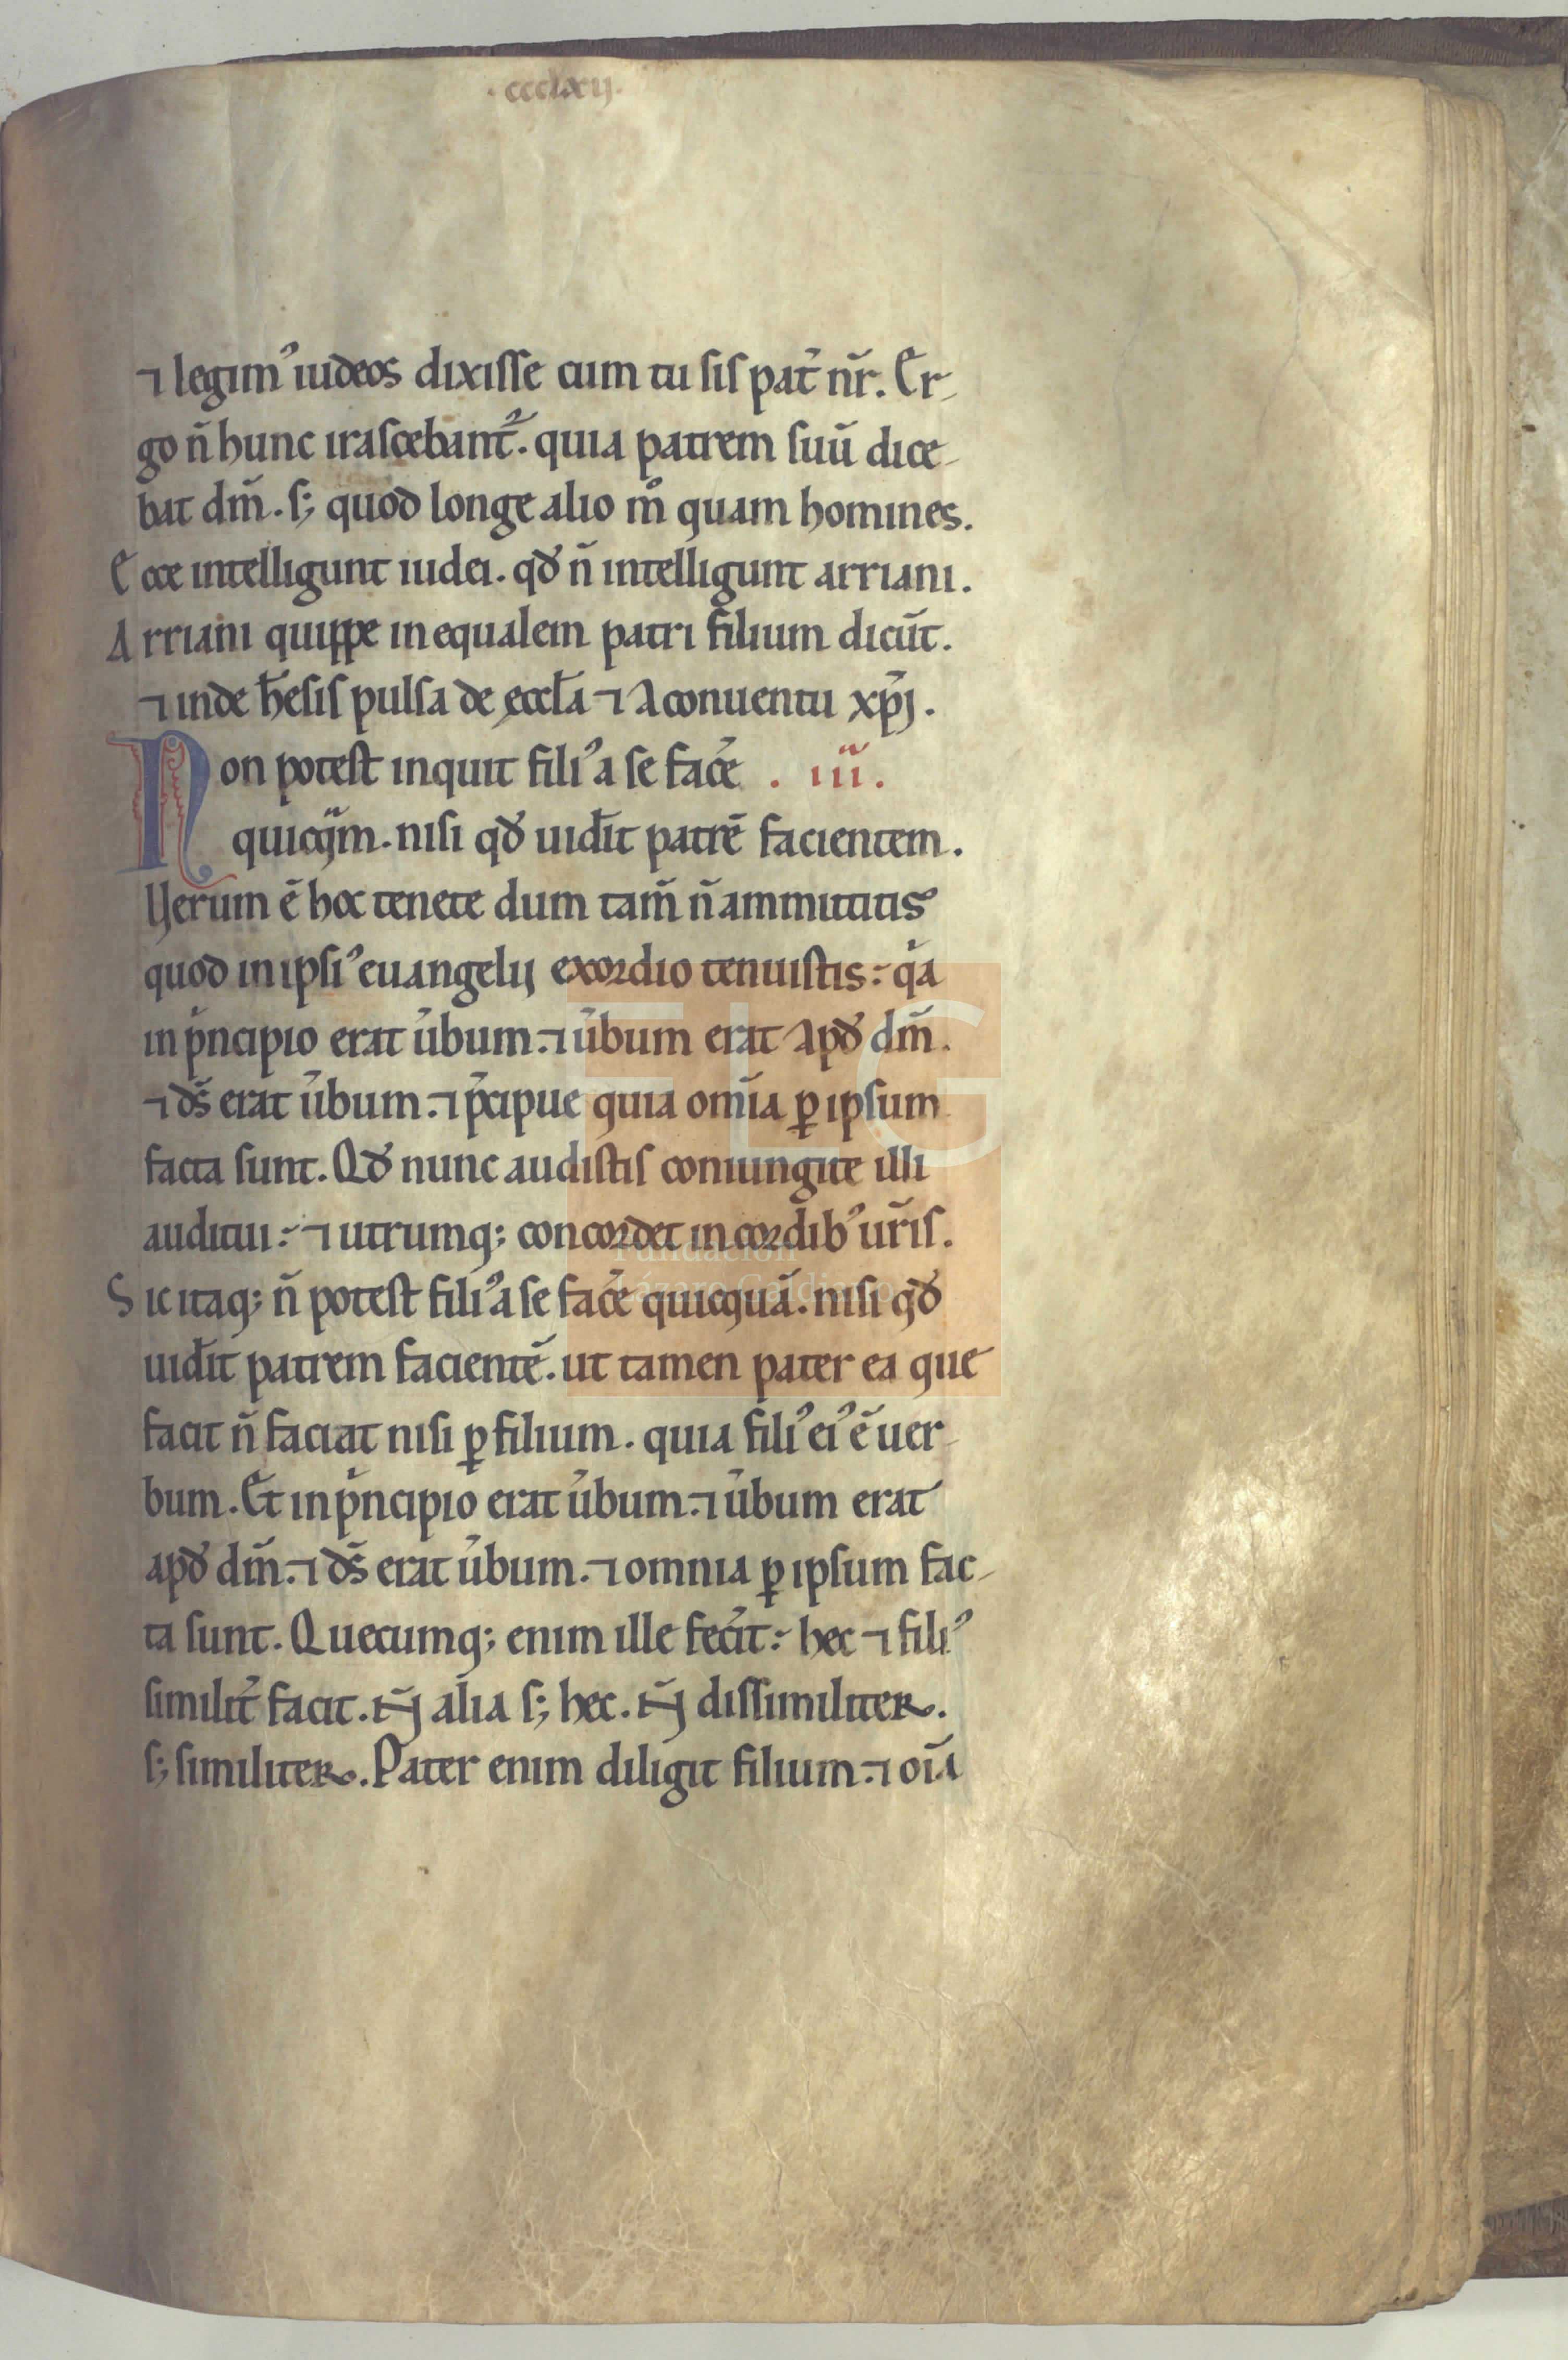 · ccclxij ·
⁊ legimꝰ iudeos dixisse cum tu sis pat̄ nr̄. Er-
go n̄ hunc irascebant᷑. quia patrem suū dice-
bat dm̄. s; quod longe alio m̊ quam homines.
Ecce intelligunt iudei. qđ n̄ intelligunt arriani.
Arriani quippe inequalem patri filium dicūt.
⁊ inde h̄esis pulsa de eccl̄a ⁊ a conuentu xp̄j.
Non potest inquit filiꝰ a se fac̄e . iiī .
quicq̄m. nisi qđ uid̄it patrē facientem.
Uerum ē hoc tenete dum tam̄ n̄ ammittatis
quod in ipsiꝰ euangelij exordio tenuistis: qͥa
in pͥncipio erat u̓bum. ⁊ u̓bum erat apđ dm̄.
⁊ ds̄ erat u̓bum. ⁊ p̄cipue quia om̄ia ꝑ ipsum
facta sunt. Qđ nunc audistis coniungite illi
auditui: ⁊ utrumq; concordet in cordibꝰ ur̄is.
Sic itaq; n̄ potest filiꝰ a se fac̄e quicquā. nisi qđ
uid̄it patrem facientē. ut tamen pater ea que
facit n̄ faciat nisi ꝑ filium. quia filiꝰ eiꝰ ē uer-
bum. Et in pͥncipio erat u̓bum. ⁊ u̓bum erat
apđ dm̄. ⁊ ds̄ erat u̓bum. ⁊ omnia ꝑ ipsum fac-
ta sunt. Quecumq; enim ille fec̄it: hec ⁊ filiꝰ
similit̄ facit. n̄ alia s; hec. n̄ dissimiliter.
s; similiter. Pater enim diligit filium. ⁊ oīa
FLG
Fundación
Lázaro Galdiano